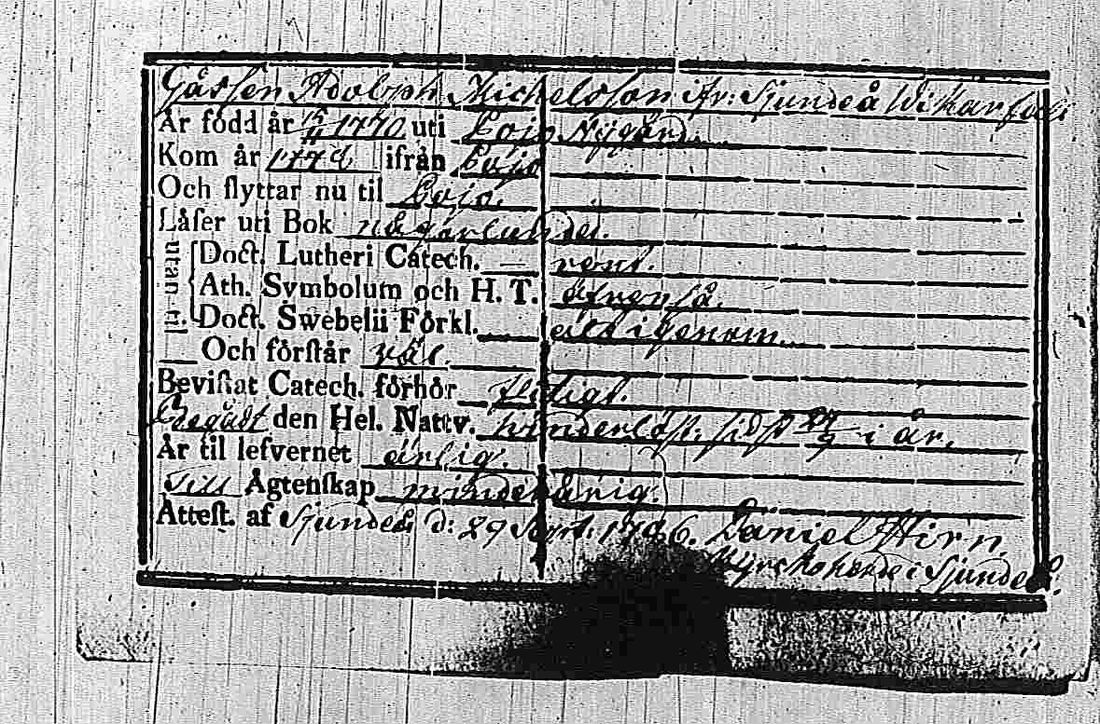 Gåssen Adolph Michelsson ifr: Sjundeå Wikarfals
Är född år 15/11 1770 uti Lojo Nygård
Kom år 1778 ifrån Lojo
Och flyttar nu til Lojo.
Låſer uti Bok någorlunda.
utan-til. Doct. Lutheri Catech. — rent.
Ath. Symbolum och H. T. äfvenså.
Doct. Swebelii Förkl. alt igenom.
Och förſtår väl.
Beviſtat Catech. förhör flitigt.
Begådt den Hel. Nattv. hinderlöst: sidst i år.
Är til lefvernet ärlig.
Till Ägtenſkap minderårig.
Atteſt. af Sjundeå d: 29 Sept: 1786. Daniel Hirn
Kyrckoherde i Sjundeå.